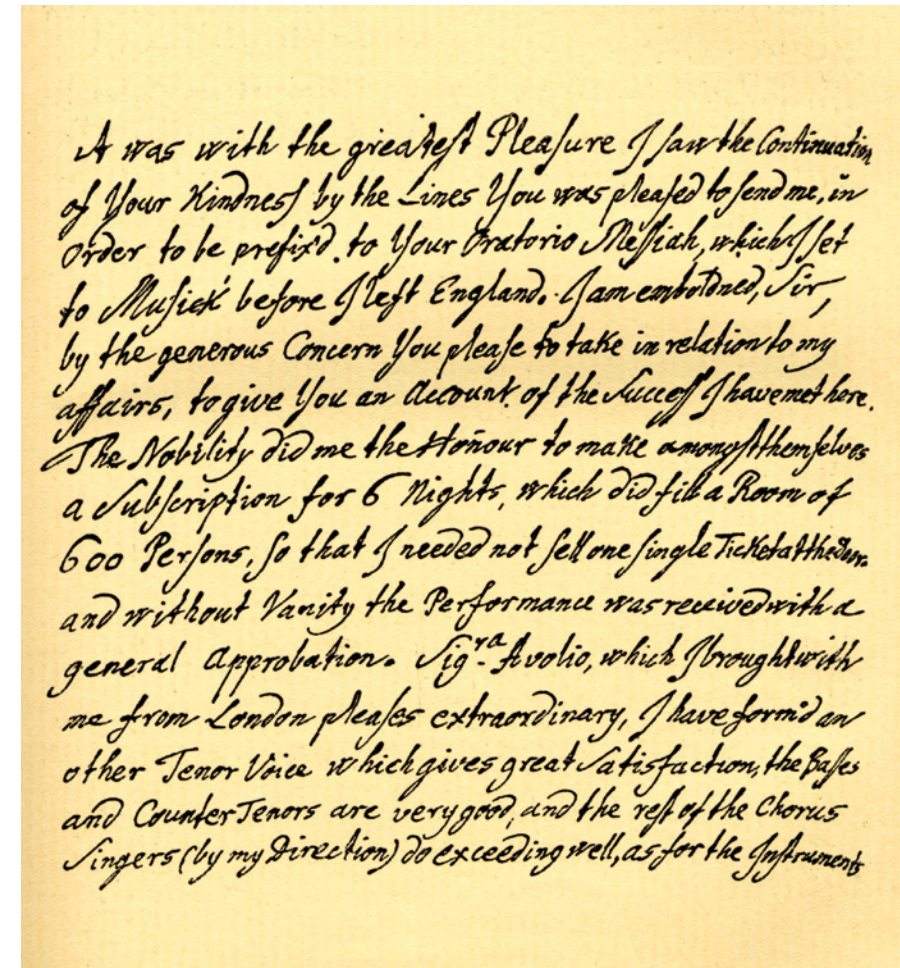 It was with the greatest Pleasure I saw the Continuation
of Your Kindness by the Lines You was pleased to send me, in
Order to be prefix'd to Your Oratorio Messiah, which I set
to Musick before I left England. I am emboldned, Sir,
by the generous Concern You please to take in relation to my
affairs, to give You an Account of the Success I have met here.
The Nobility did me the Honour to make amongst themselves
a Subscription for 6 Nights, which did fill a Room of
600 Persons, so that I needed not sell one single Ticket at the Door.
and without Vanity the Performance was received with a
general Approbation. Sig.ra Avolio, which I brought with
me from London pleases extraordinary, I have form'd an
other Tenor Voice which gives great Satisfaction, the Basses
and Counter Tenors are very good, and the rest of the Chorus
Singers (by my Direction) do exceeding well, as for the Instruments